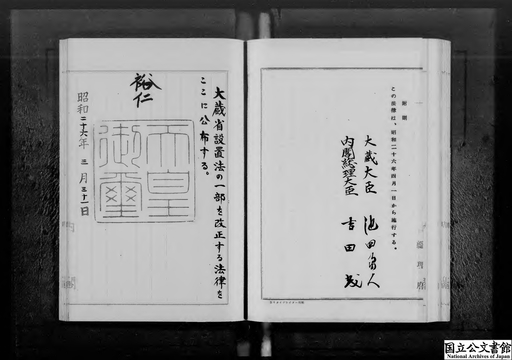 大蔵省設置法の一部を改正する法律を
ここに公布する。
裕仁
天皇
御璽
昭和二十六年三月三十一日
附則
この法律は、昭和二十六年四月一日から施行する。
大蔵大臣 池田勇人
内閣総理大臣 吉田茂
国立公文書館
National Archives of Japan